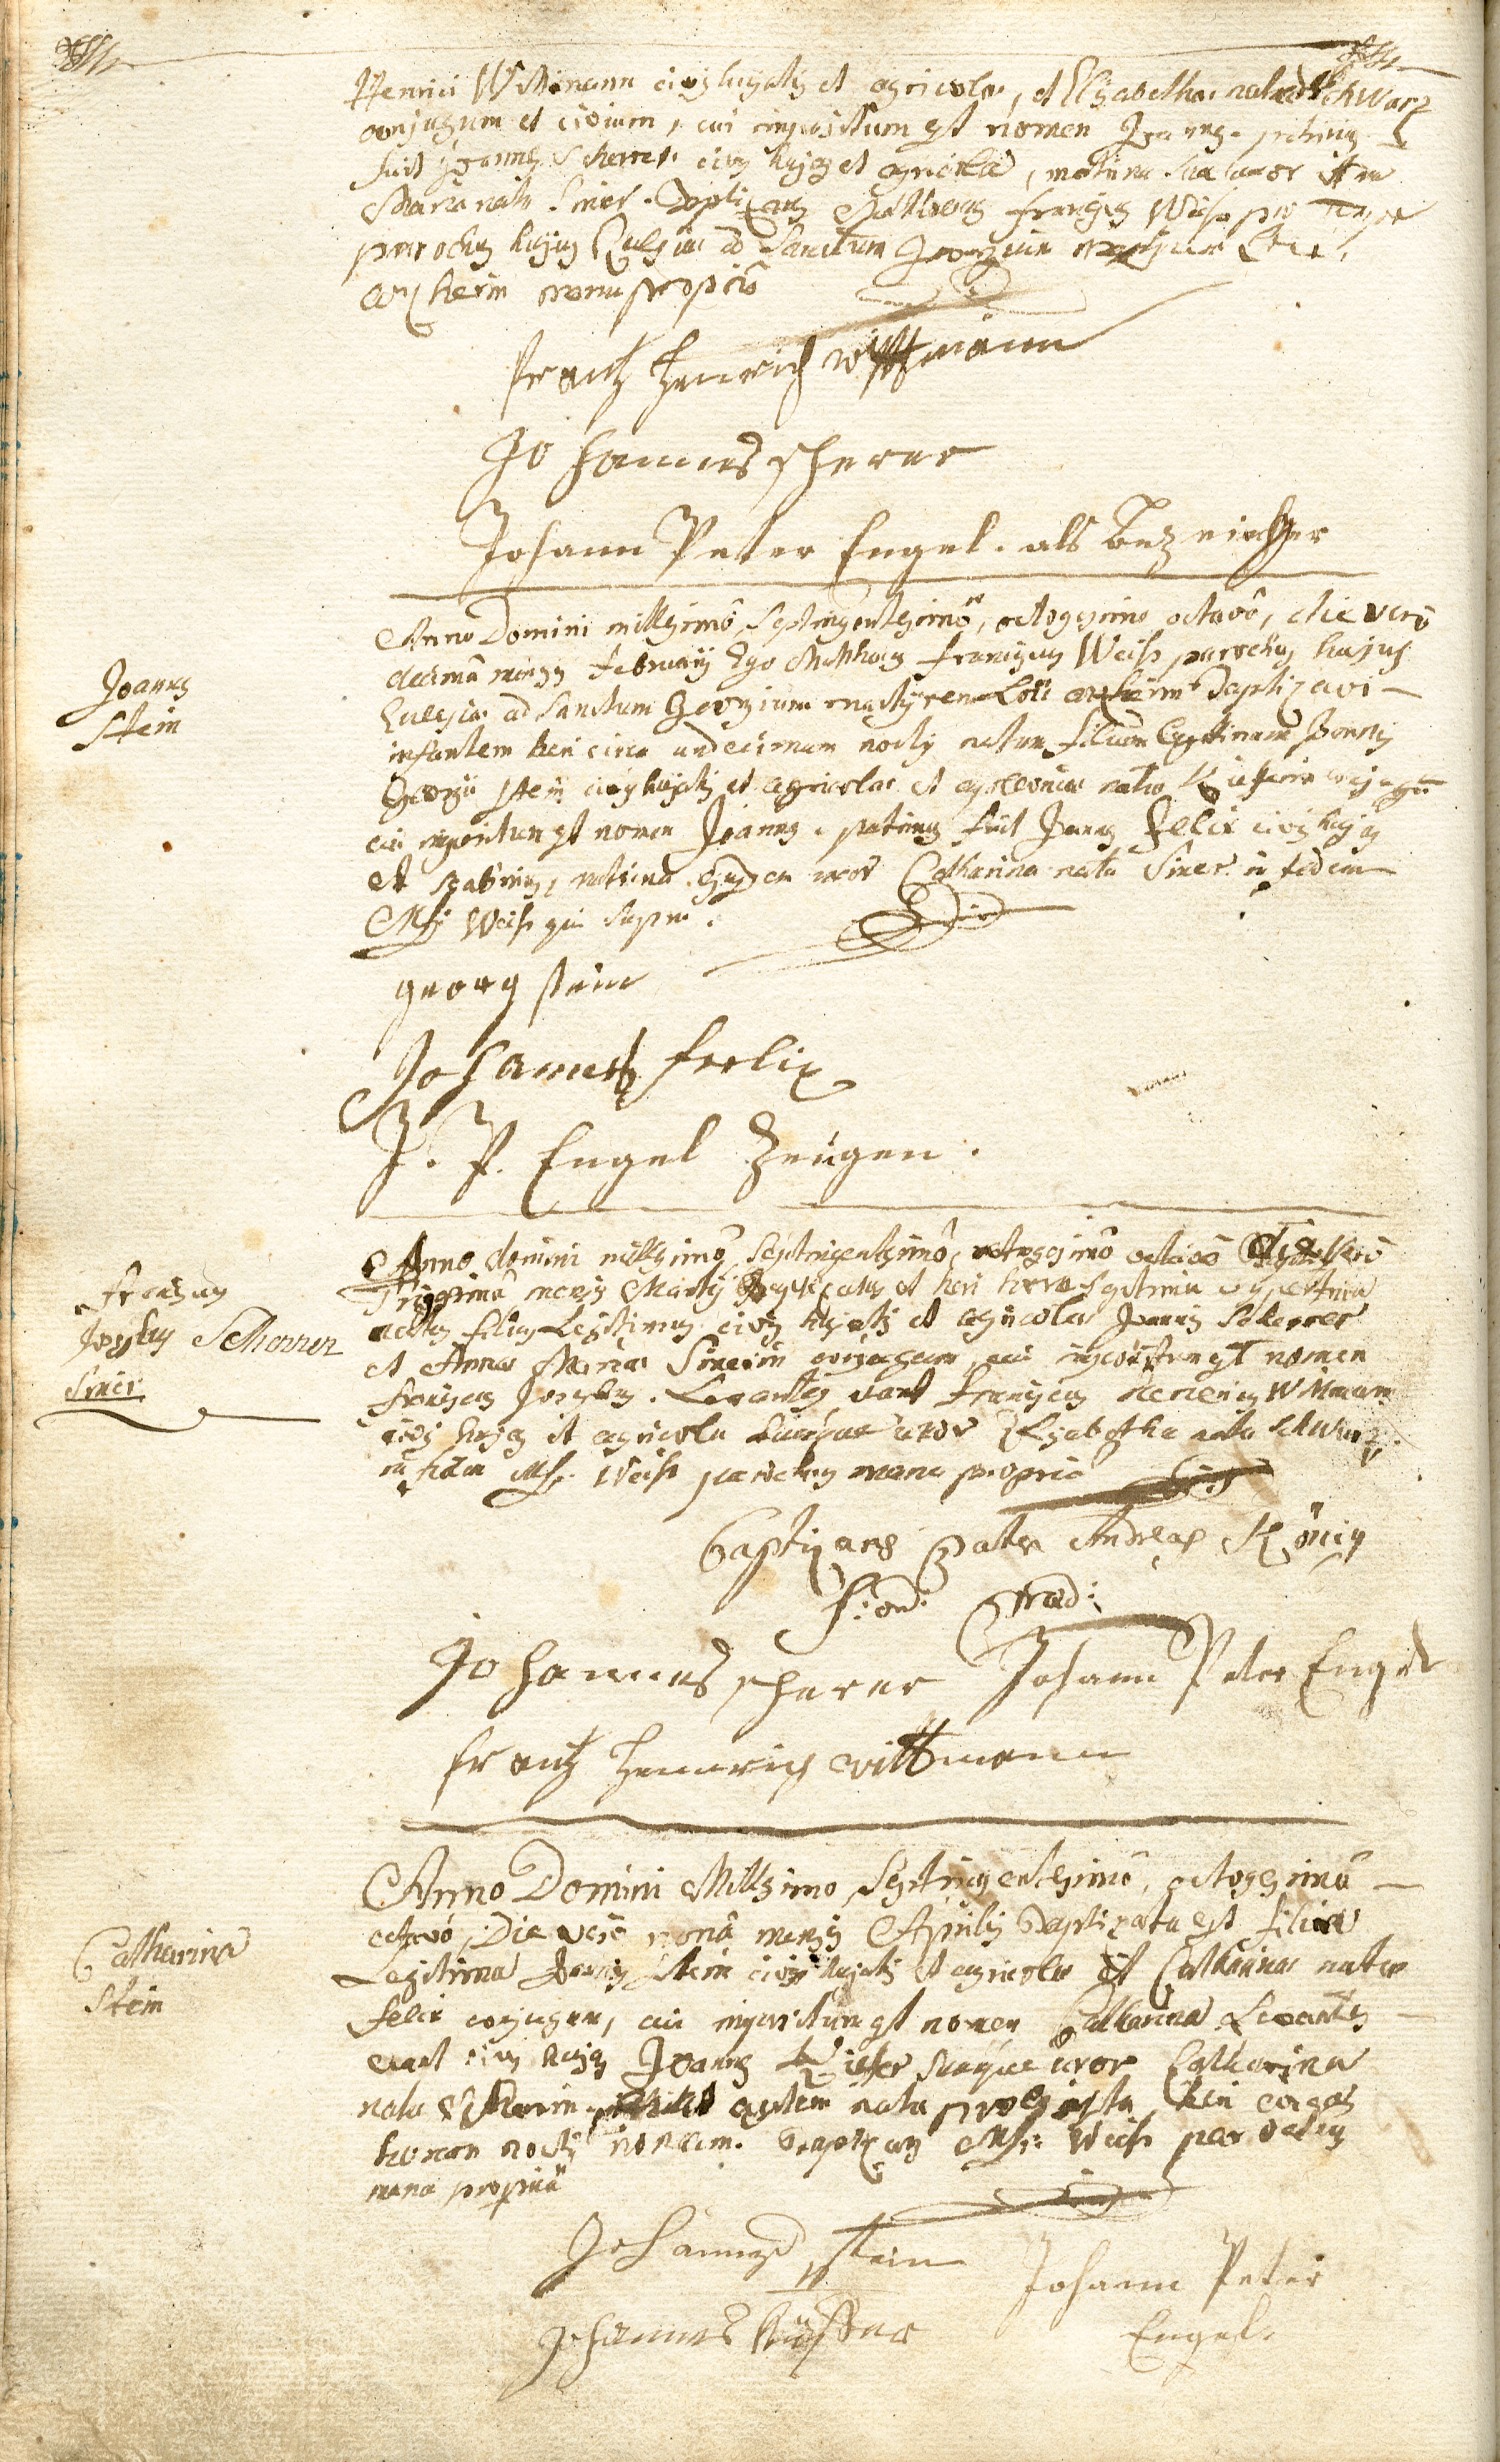 Henrici Wittmann civis hujatis et agricolæ, et Elisabethæ natæ Schwarz
conjugum et civium, cui impositum est nomen Joannes. patrinus
fuit Joannes Scherrer civis hujas et agricola, matrina sua uxor
Maria nata Siner. Baptizans Matthæus Franciscus Weiss pro tempore
parochus hujus Ecclesiæ ad Sanctum Georgium
manu propriâ
frantz Henrich wittmann
Johannes scherer
Johann Peter Engel. als
Anno Domini millesimô, Septingentesimô, octogesimo octavô, die verô
decimâ mensis februarij Ego Matthæus franciscus Weiss parochus hujus
Ecclesiæ ad Sanctum Georgium martyrem baptizavi
infantem heri circa undecimam noctis natum filium legitimum Joannis
Georgii Stein civis hujatis et agricolæ et natæ conjugum
cui impositum est nomen Joannes. patrinus fuit Joannes Felix civis hujas
et matrina ejusdem uxor Catharina nata Siner. in fidem
Mf. Weiss qui supra.
Joannes
Stein
georg stein
Johannes feelix
J. P. Engel Zeugen.
Anno domini millesimô, Septingentesimô, octogesimô octavô die verô
Trigesimâ mensis Martij Baptizatus et heri hora septima vespertina
natus filius Legitimus civis hujatis et agricolæ Joannis Scherrer
et Annæ Mariæ Sinerin conjugum, cui impositum est nomen
franciscus Josephus. Levantes erant franciscus Henricus Wittmann
civis hujas et agricola suaque uxor Elisabetha nata Schwarz.
in fidem Mf. Weiss parochus manu propria
Franciscus
Josephus Scherrer
Siner
baptizans Pater Andreas König
Johannes scherer Johann Peter Engel
frantz Henrich wittmann
Anno Domini Millesimo, Septingentesimô, octogesimô
octavô, Die verô nonâ mensis Aprilis Baptizata est filia
Legitima Joannis Stein civis hujatis et agricolæ et Catharinæ natæ
Felix conjugum, cui impositum est nomen Catharina Levantes
erant civis hujas Joannes Kieffer suaque uxor Catharina
nata autem nata proles ista heri circa
horam noctis nonam. Baptizans Mf: Weiss parochus
manu propriâ
Catharina
Stein
Johannes stein Johann Peter
Johannes Küffer Engel.